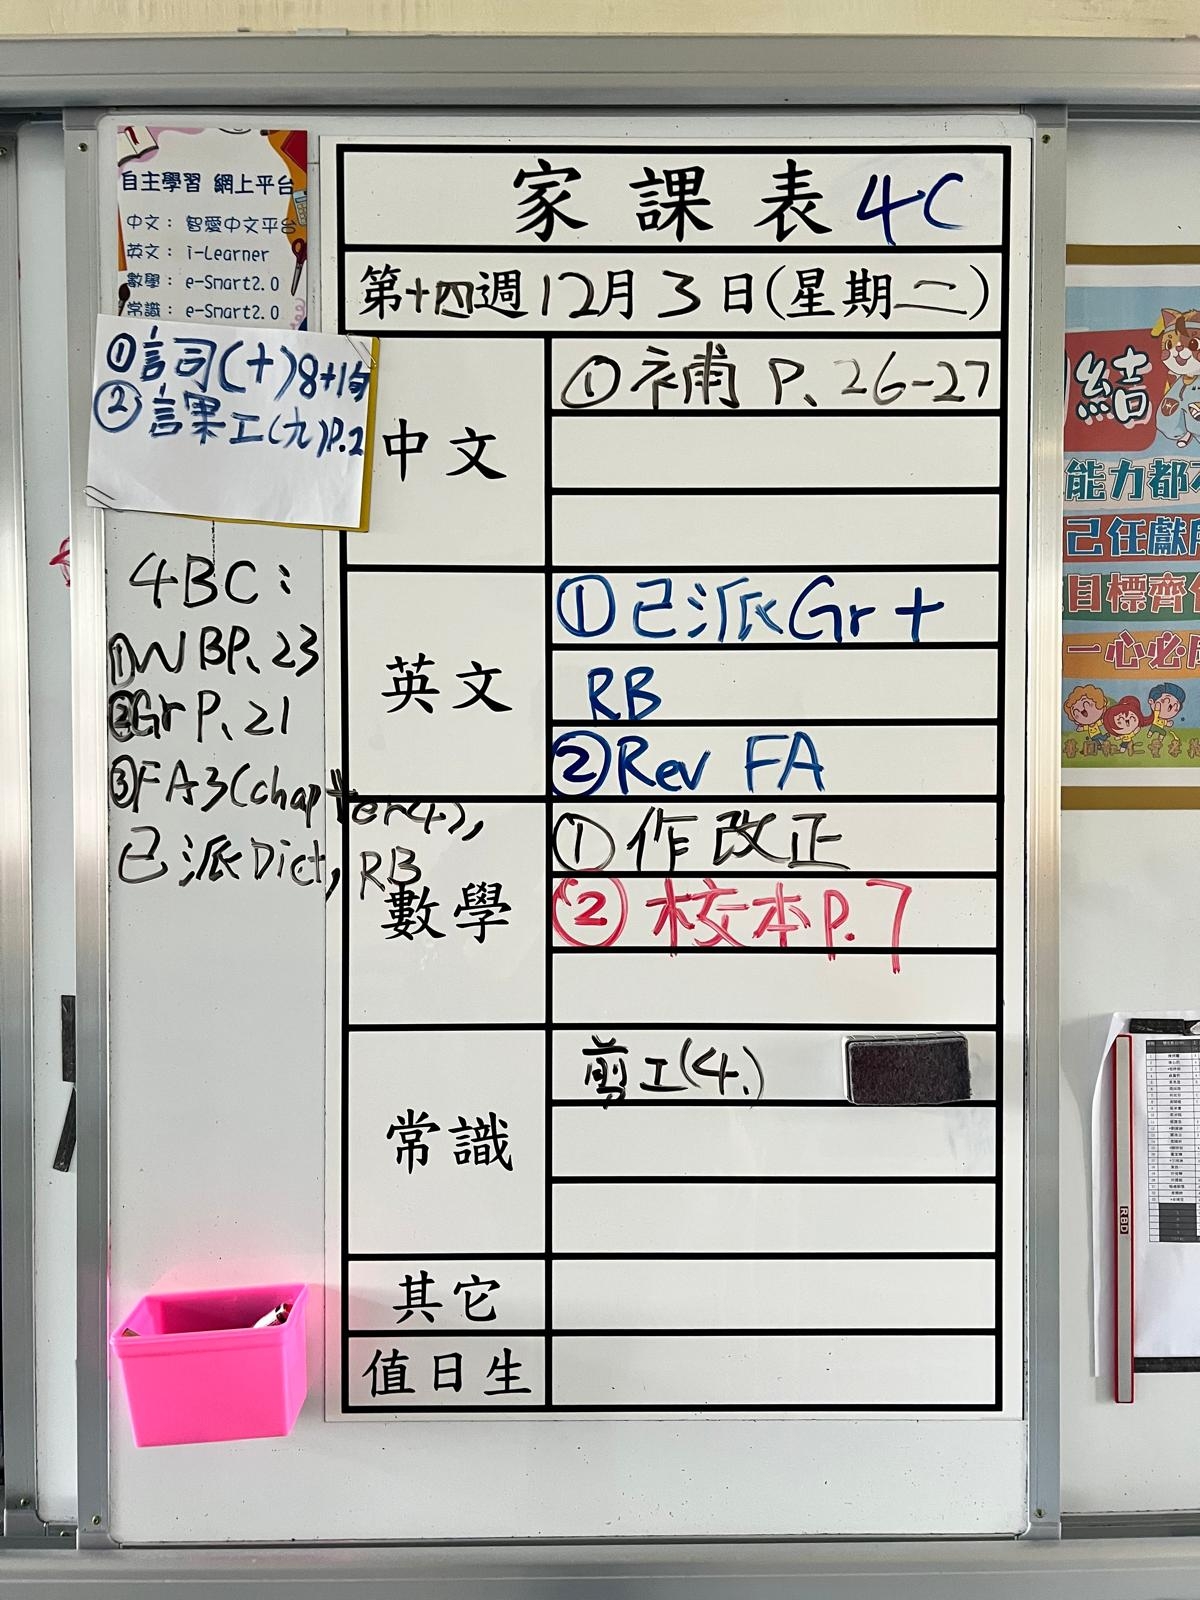 自主學習 網上平台
中文： 智愛中文平台
英文： i-Learner
數學： e-Smart2.0
常識： e-Smart2.0
①詞(十)8+1句
②課工(九)P.2
4BC：
①WBP.23
②Gr P.21
③FA3(chapter4),
已派Dict, RB
家課表 4C
第十四週12月3日(星期二)
中文
①補 P. 26-27
英文
①已派Gr +
RB
②Rev FA
數學
①作改正
②校本P.7
常識
剪工(4.)
其它
值日生
結
能力都不
己任獻
目標齊
一心必
RBD